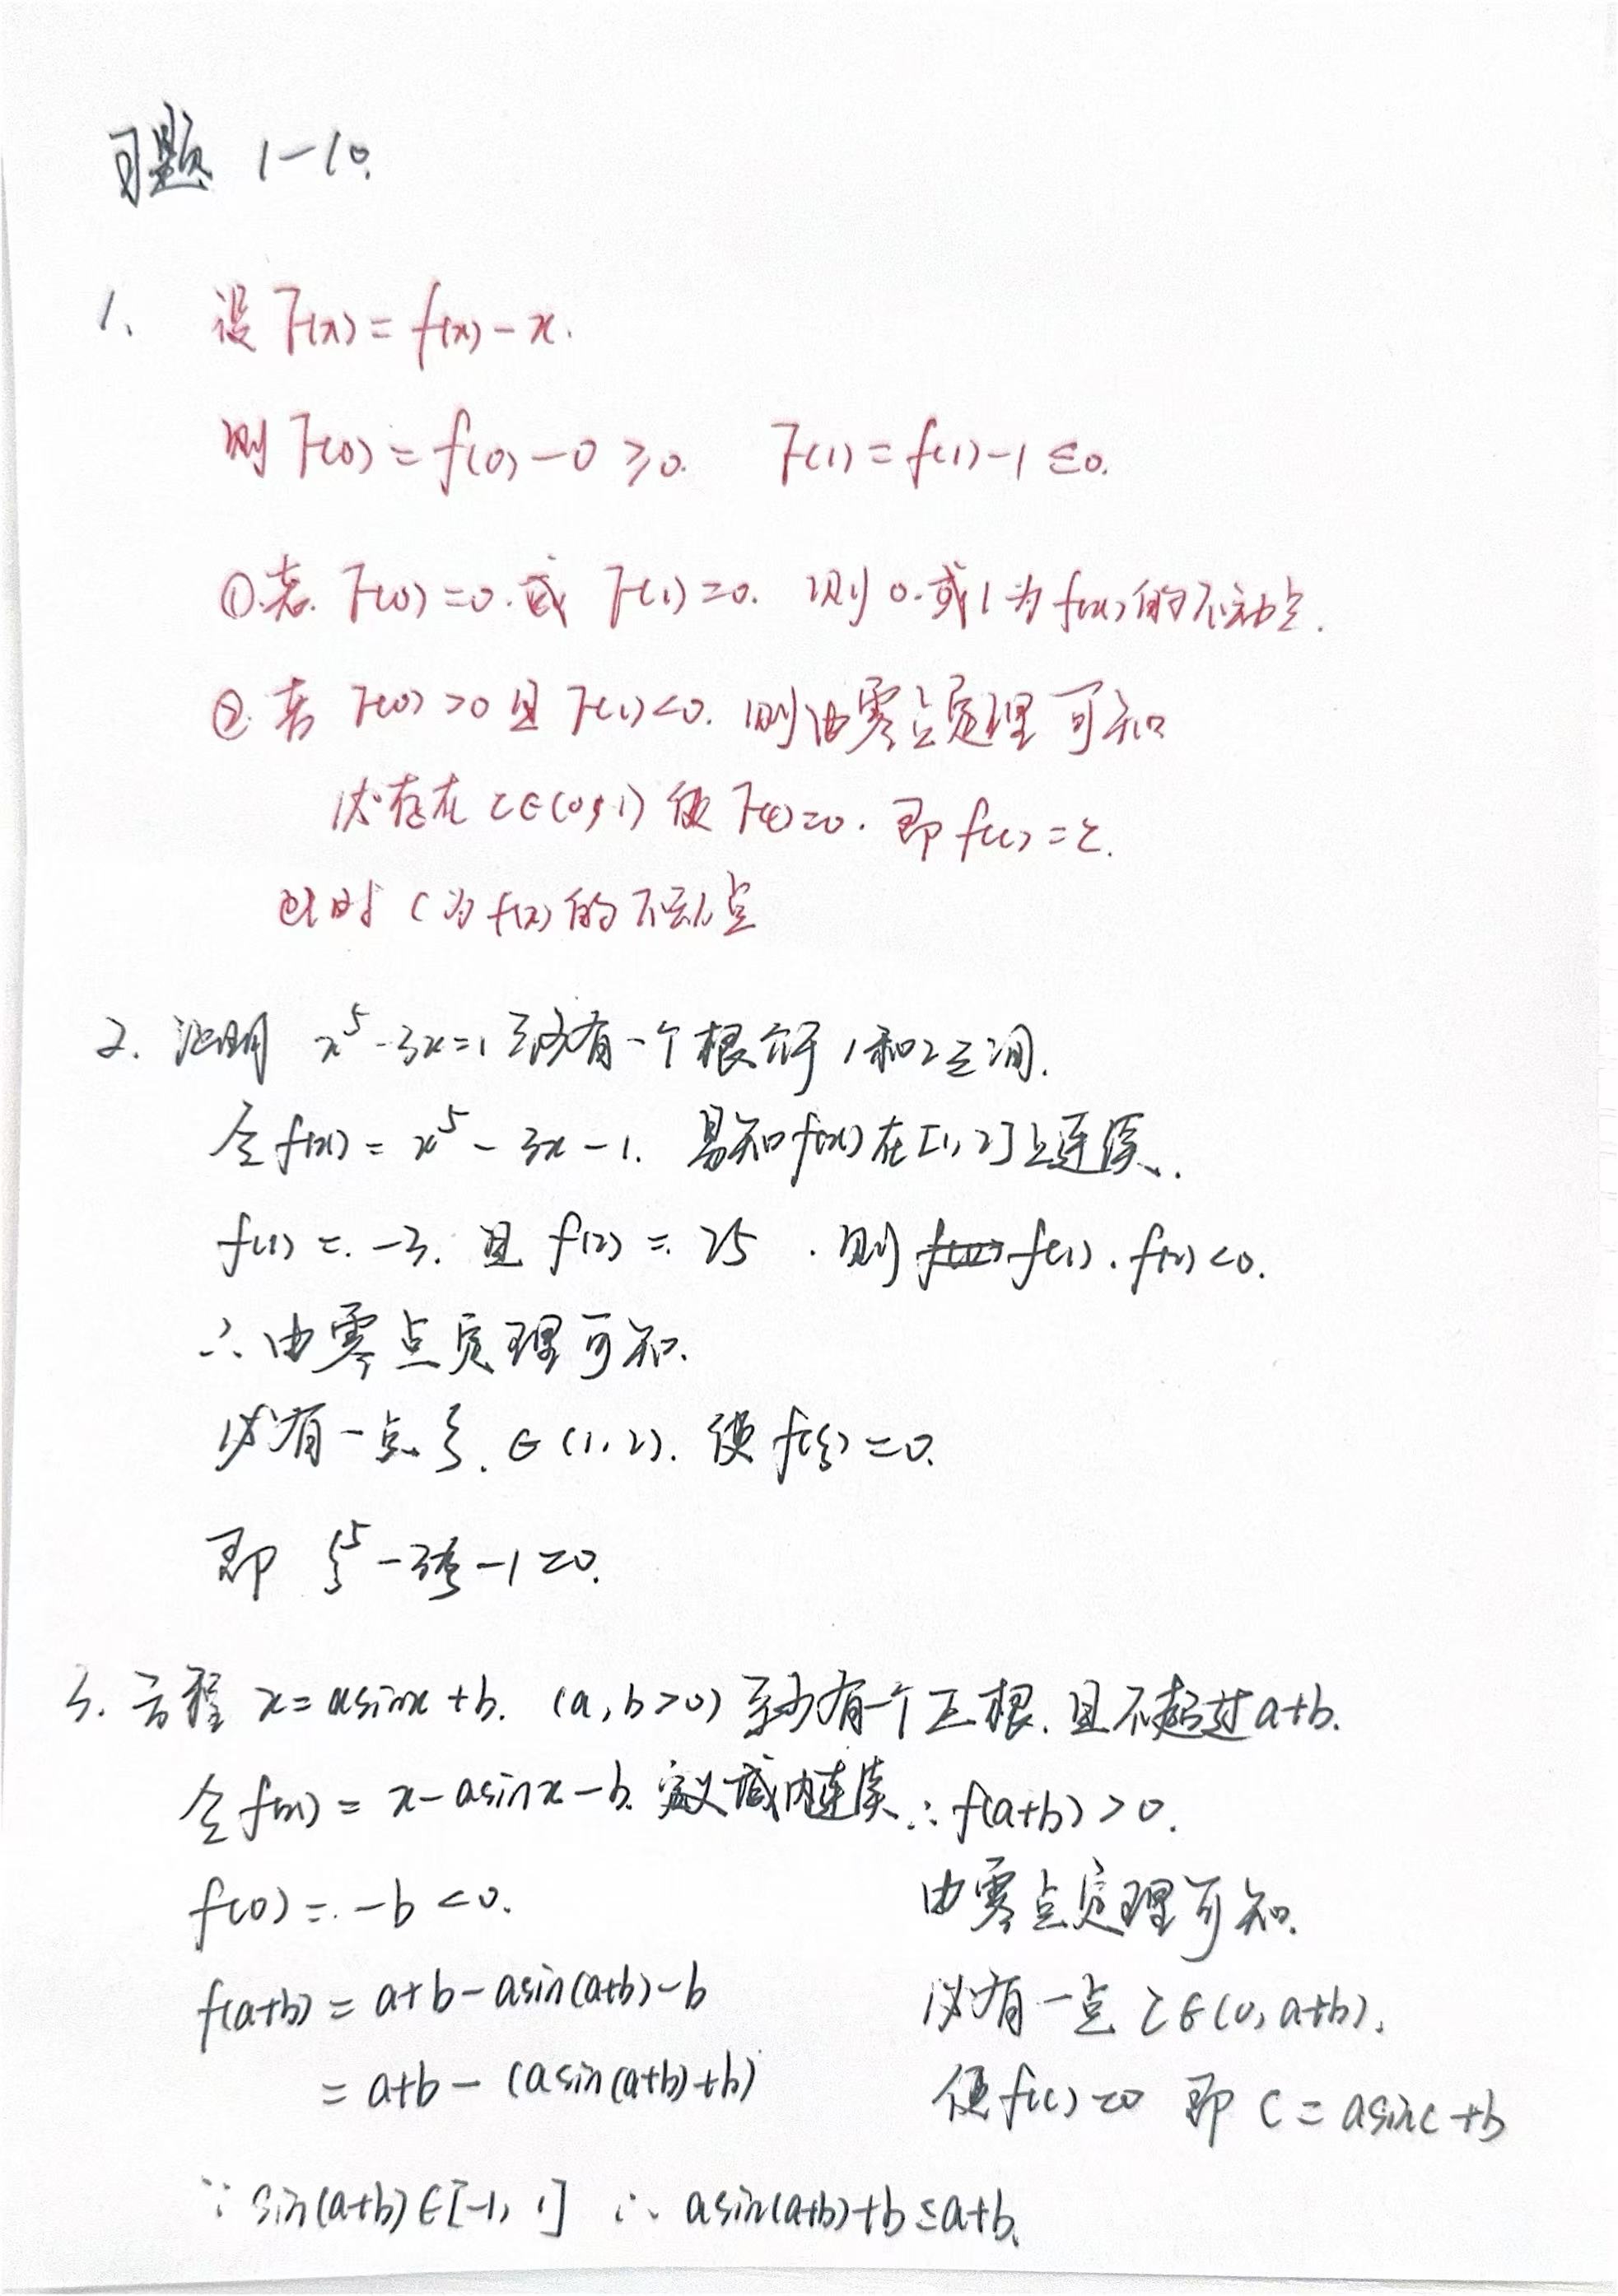 习题 1-10.
1. 设 F(x) = f(x) - x.
则 F(0) = f(0) - 0 ≥ 0. F(1) = f(1) - 1 ≤ 0.
① 若. F(0) = 0. 或 F(1) = 0. 则 0. 或 1 为 f(x) 的不动点.
② 若 F(0) > 0 且 F(1) < 0. 则由零点定理可知
必存在 c∈(0,1) 使 F(c) = 0. 即 f(c) = c.
此时 c 为 f(x) 的不动点
2. 证明 x⁵ - 3x = 1 至少有一个根介于 1 和 2 之间.
令 f(x) = x⁵ - 3x - 1. 易知 f(x) 在 [1, 2] 上连续.
f(1) = -3. 且 f(2) = 25. 则 f(1). f(2) < 0.
∴ 由零点定理可知.
必有一点 ξ. ∈ (1, 2). 使 f(ξ) = 0.
即 ξ⁵ - 3ξ - 1 = 0.
3. 方程 x = asinx + b. (a, b > 0) 至少有一个正根. 且不超过 a+b.
令 f(x) = x - asinx - b. 定义域内连续. ∴ f(a+b) > 0.
f(0) = -b < 0.
f(a+b) = a+b - asin(a+b) - b
= a+b - (asin(a+b) + b)
∵ sin(a+b) ∈ [-1, 1] ∴ asin(a+b) + b ≤ a+b.
由零点定理可知.
必有一点 c∈(0, a+b).
使 f(c) = 0 即 c = asinc + b